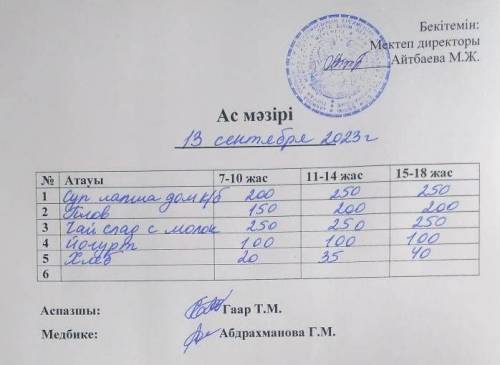 Бекітемін:
Мектеп директоры
Айтбаева М.Ж.
Ас мәзірі
13 сентября 2023г
№ Атауы 7-10 жас 11-14 жас 15-18 жас
1 Суп лапша дом к/б 200 250 250
2 Плов 150 200 200
3 Чай слад с молок 250 250 250
4 Йогурт 100 100 100
5 Хлеб 20 35 40
6
Аспазшы: Гаар Т.М.
Медбике: Абдрахманова Г.М.